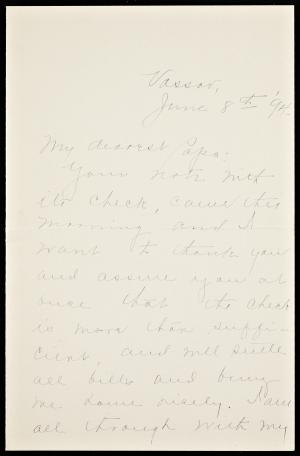 Vassar,
June 8th '94.
My dearest Papa:
Your note with
its check, came this
morning and I
want to thank you
and assure you at
once that the check
is more than suffi-
cient, and will settle
all bills and bring
me home nicely. I am
all through with my